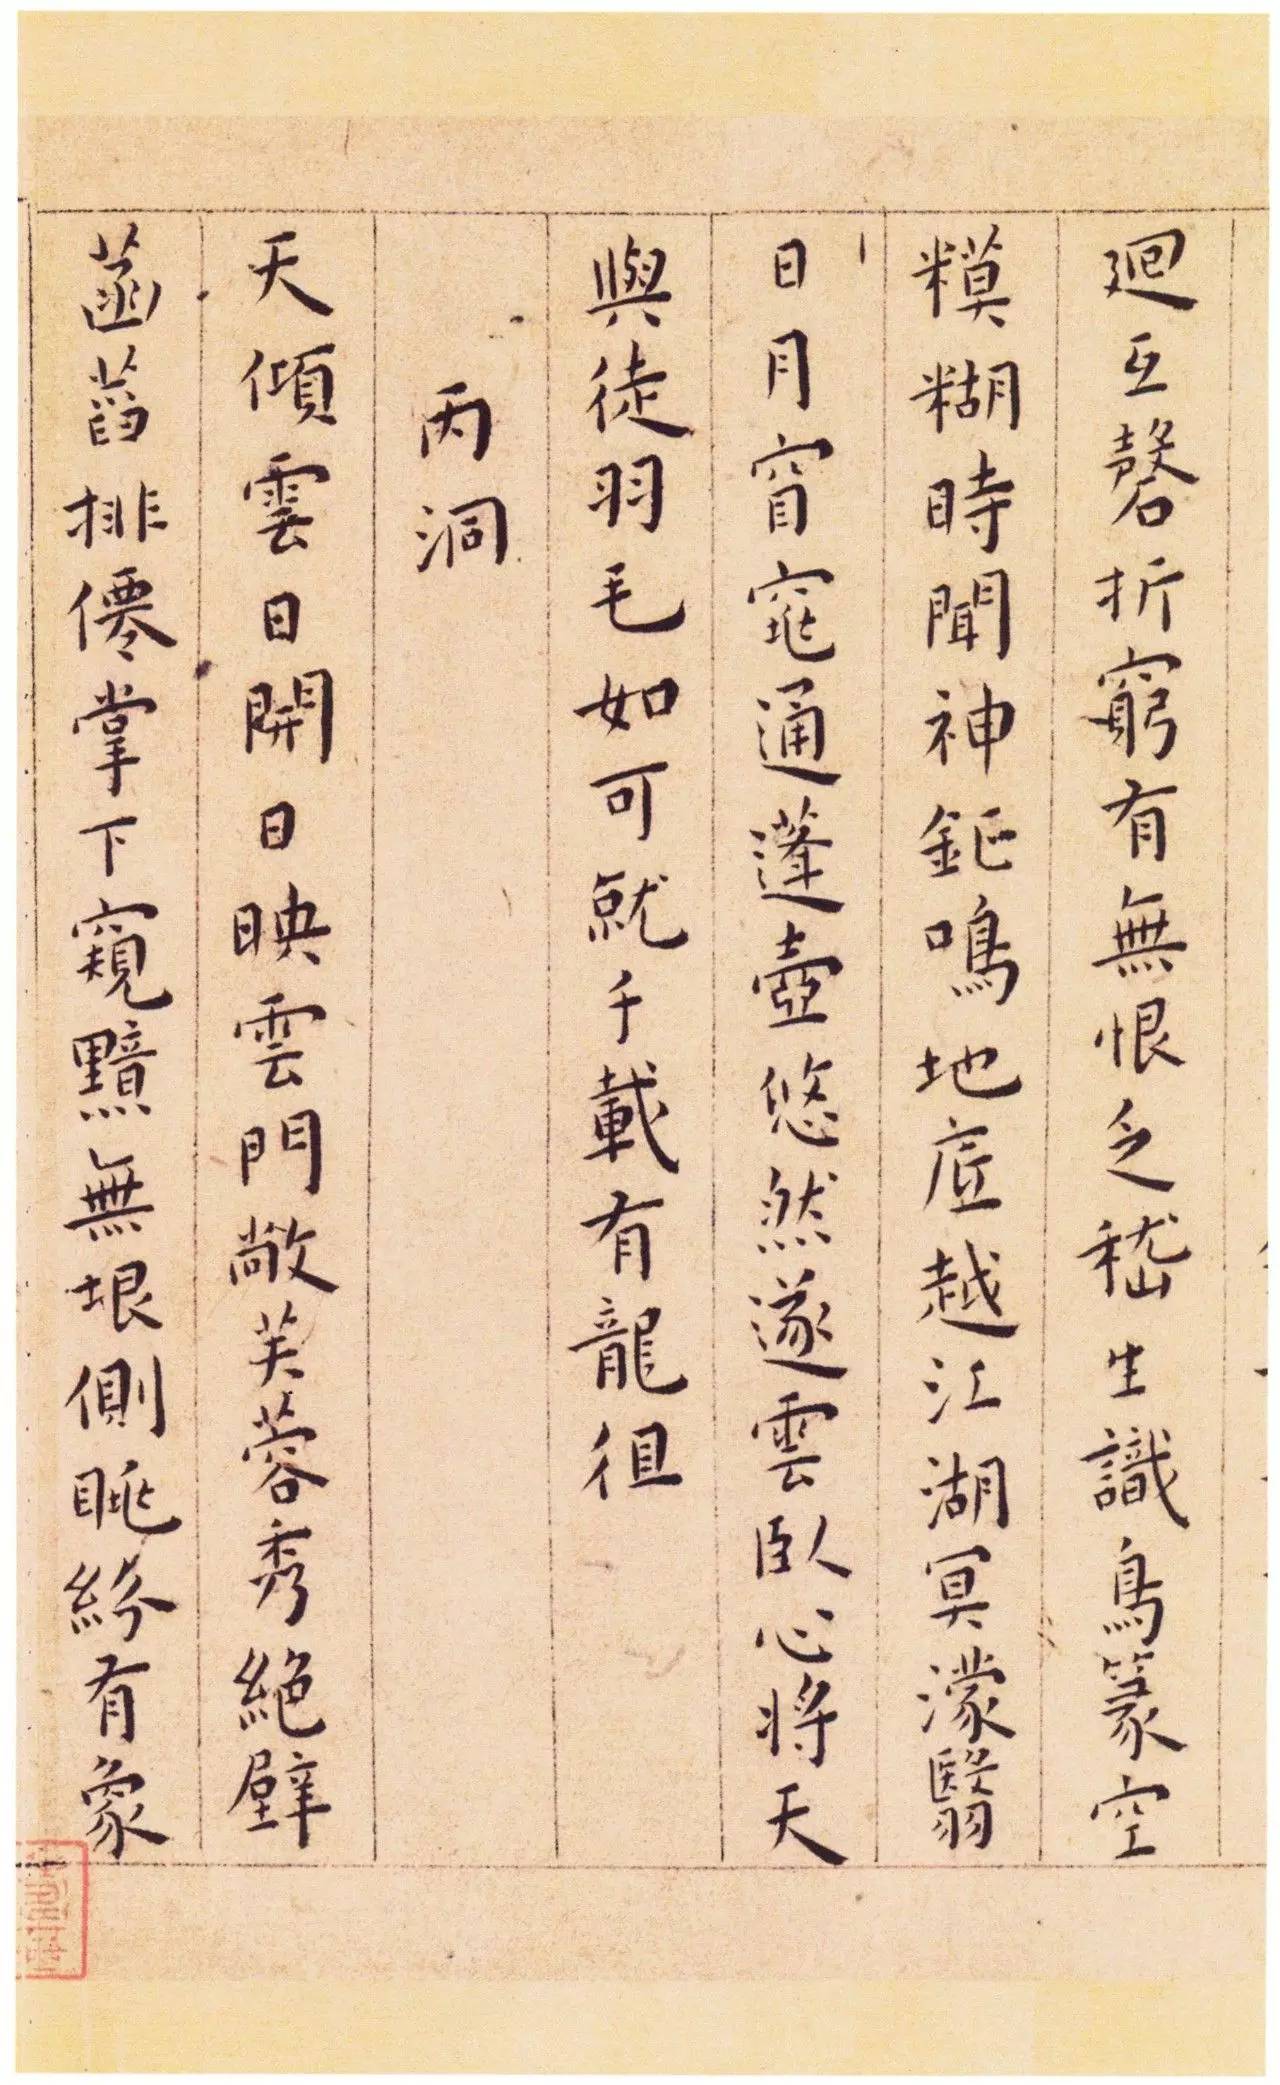 廻互磬折窮有無恨乏嵇生識鳥篆空
糢糊時聞神鉦鳴地底越江湖冥濛翳
日月窅窕通蓬壺悠然遂雲臥心將天
與徒羽毛如可就千載有龍徂
丙洞
天傾雲日開日映雲門敞芙蓉秀絕壁
菡萏排僊掌下窺黯無垠側眺紛有象